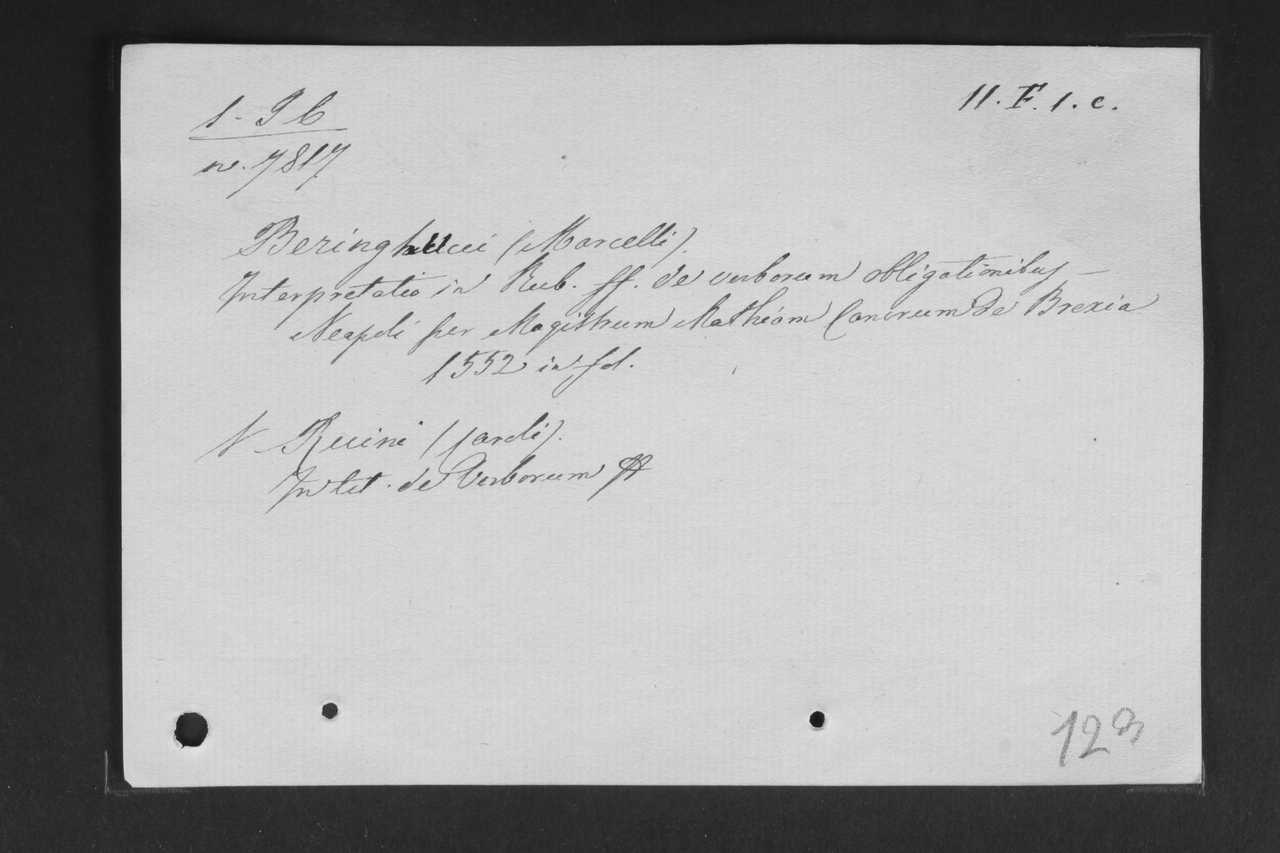 1 - I b
11. F. 1. c.
nº. 7817
Beringhucci (Marcelli).
Interpretatio in Rub. ff. de verborum obligationibus -
Neapoli per Magistrum Mathiam Cancrum de Brexia
1552 in fol.
V Ruini (Caroli).
In tit. de Verborum ff
123